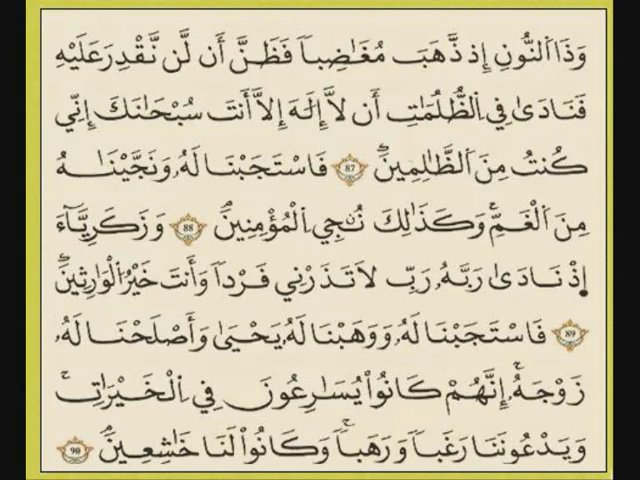 وَذَا اَ۬لنُّونِ إِذ ذَّهَبَ مُغَٰضِباٗ فَظَنَّ أَن لَّن نَّقْدِرَ عَلَيْهِ
فَنَادَىٰ فِي اِ۬لظُّلُمَٰتِ أَن لَّا إِلَٰهَ إِلَّا أَنتَ سُبْحَٰنَكَ إِنِّي
كُنتُ مِنَ اَ۬لظَّٰلِمِينَۖ 87 فَاسْتَجَبْنَا لَهُۥ وَنَجَّيْنَٰهُ
مِنَ اَ۬لْغَمِّۚ وَكَذَٰلِكَ نُۨجِي اِ۬لْمُؤْمِنِينَۖ 88 وَزَكَرِيَّآءَ
اِ۪ذْ نَادَىٰ رَبَّهُۥ رَبِّ لَا تَذَرْنِي فَرْداٗ وَأَنتَ خَيْرُ اُ۬لْوَٰرِثِينَۖ
89 فَاسْتَجَبْنَا لَهُۥ وَوَهَبْنَا لَهُۥ يَحْيَىٰ وَأَصْلَحْنَا لَهُۥ
زَوْجَهُۥۚ إِنَّهُمْ كَانُواْ يُسَٰرِعُونَ فِي اِ۬لْخَيْرَٰتِۚ
وَيَدْعُونَنَا رَغَباٗ وَرَهَباٗۚ وَكَانُواْ لَنَا خَٰشِعِينَۖ 90